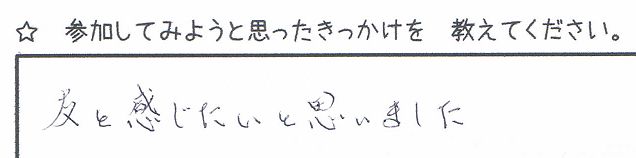 ☆ 参加してみようと思ったきっかけを 教えてください。
友と感じたいと思いました